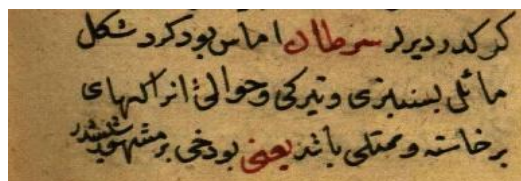 کرکدر دیرلر سرطان اماس بود کرد شکل
مائل بسبزی و تیرکی و حوالئ انرا کهای
برخاسته و ممتلی باشد یعنی بودخی بر